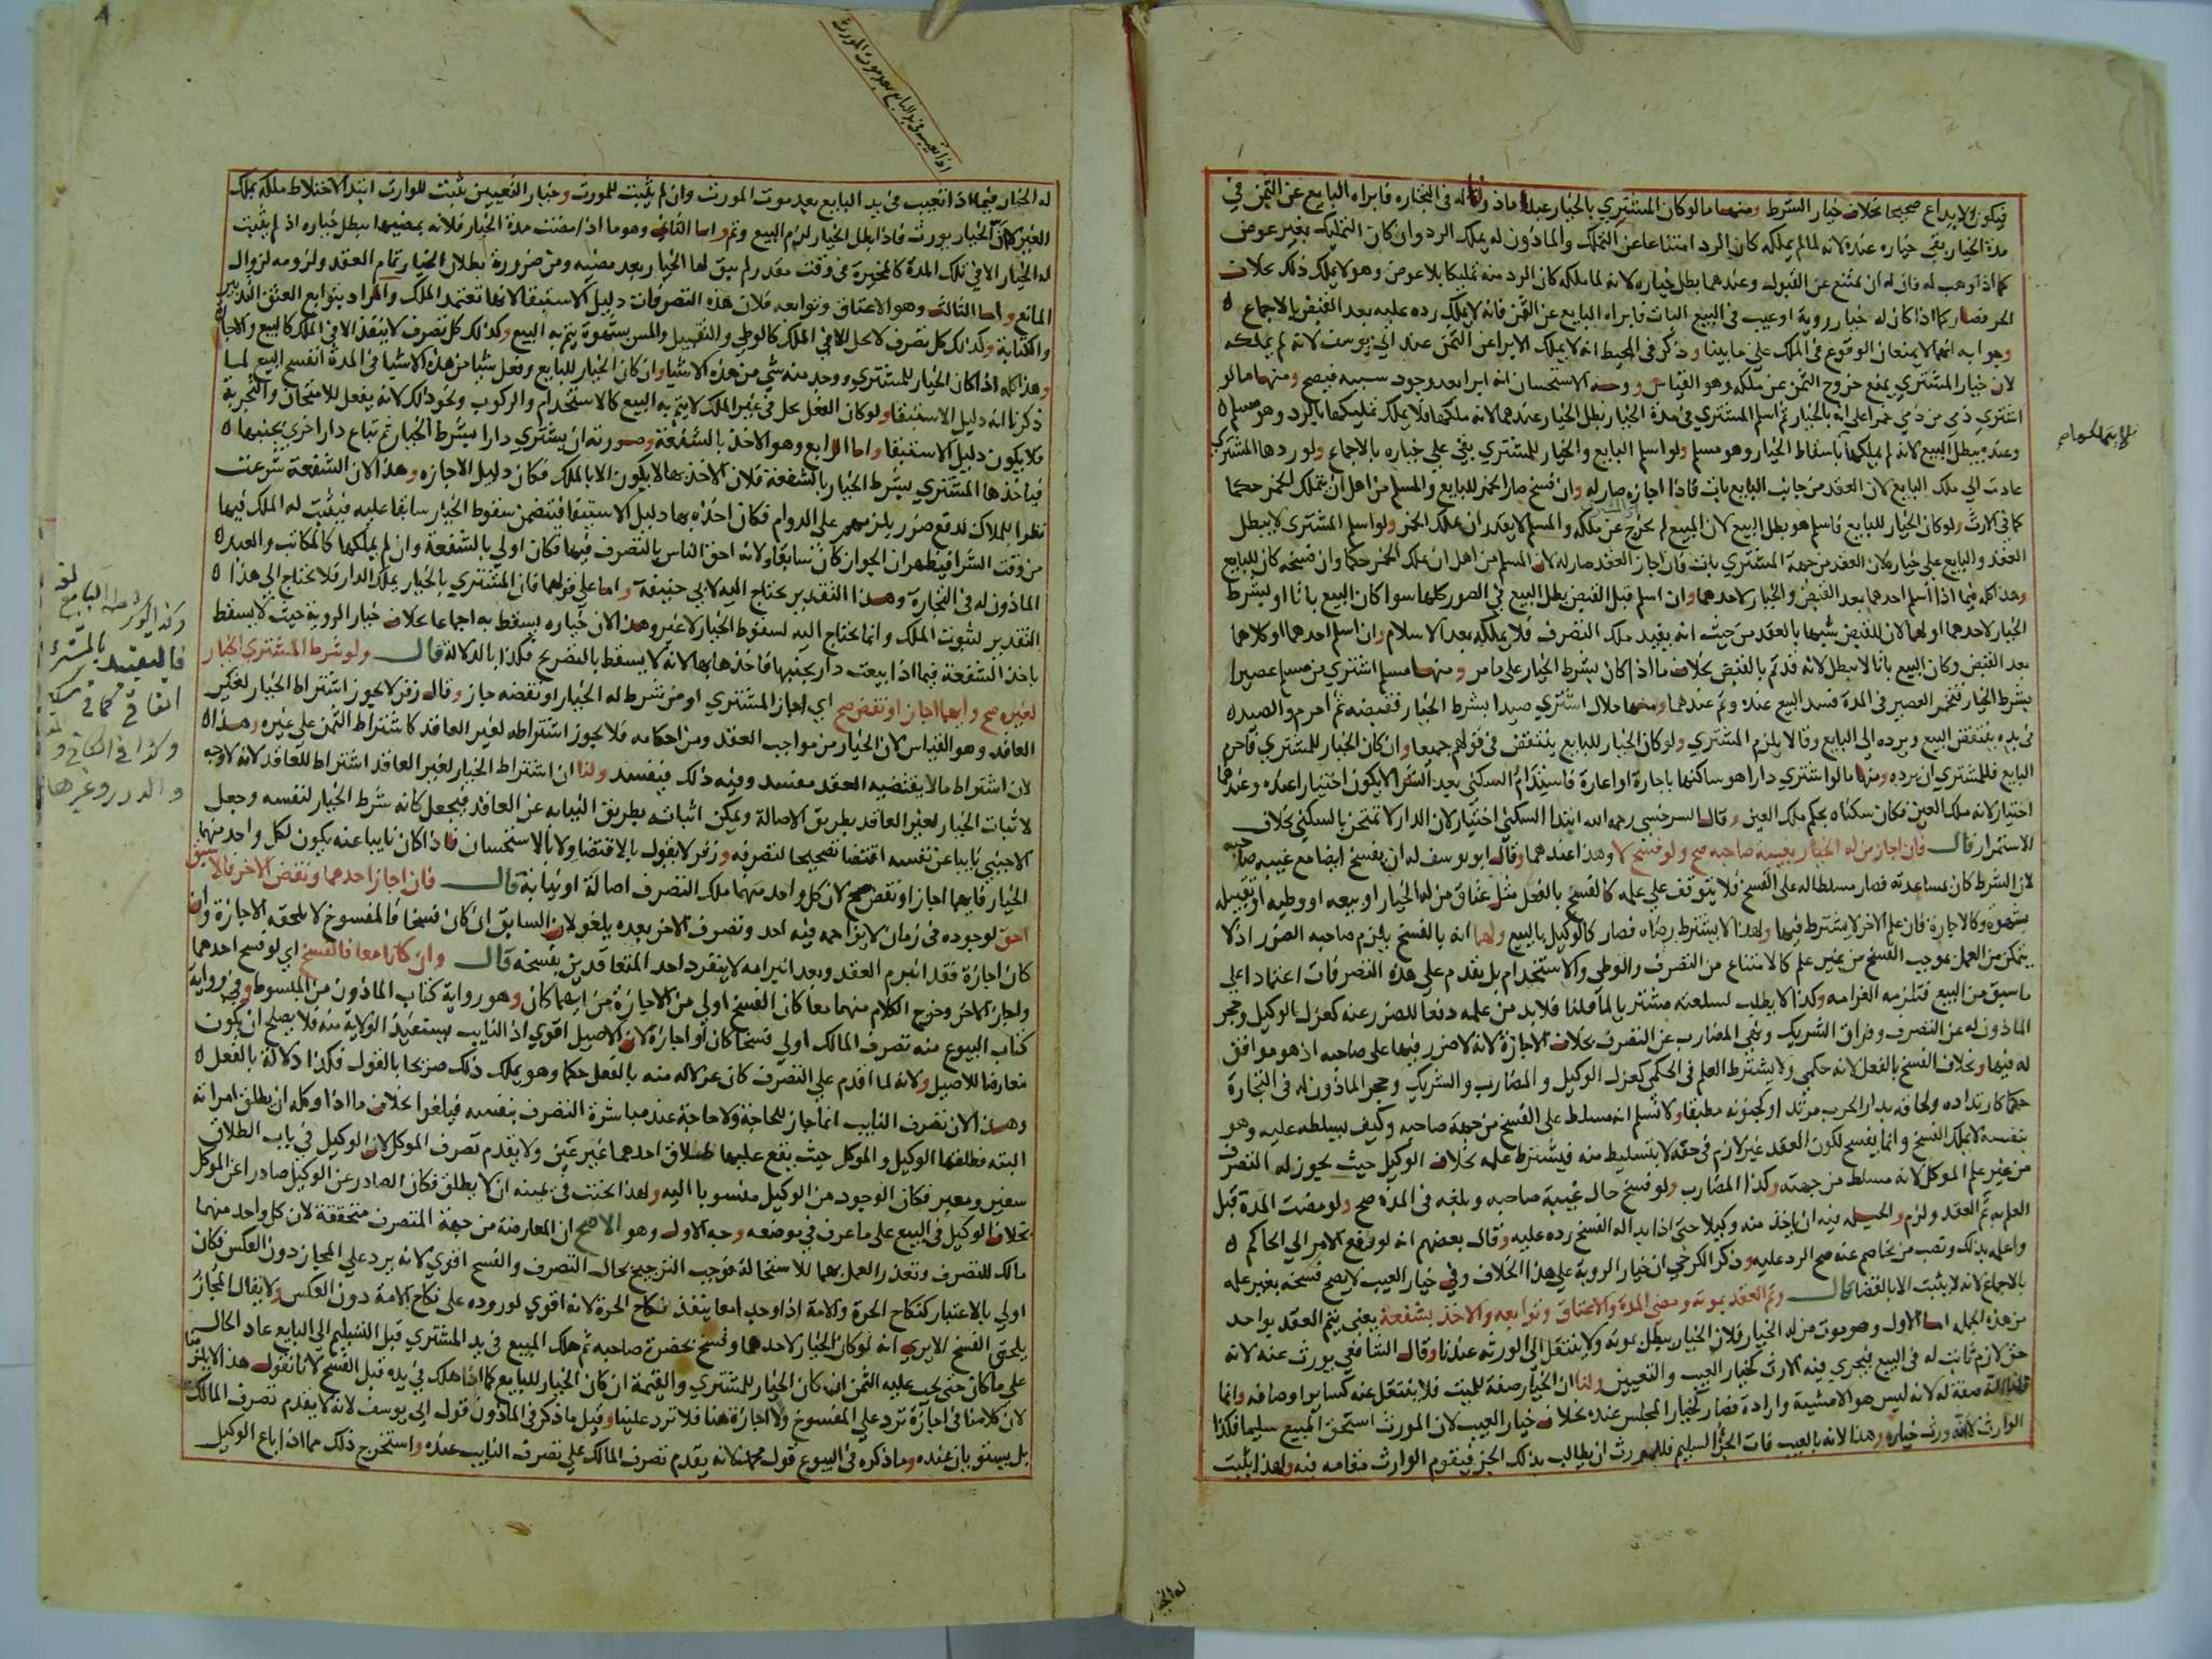 فيكون الايداع صحيحا بخلاف خيار الشرط ومنها ما لو كان المشتري بالخيار عبدا ماذونا له في التجارة فابراه البايع عن الثمن في
مدة الخيار بقي خياره عنده لانه لما لم يملكه كان الرد امتناعا عن التملك والماذون له يملك الرد وان كان التمليك بغير عوض
كما اذا وهب له فان له ان يمتنع عن القبول وعندهما بطل خياره لانه لما ملكه كان الرد منه تمليكا بلا عوض وهو لا يملك ذلك بخلاف
الحر فصار كما اذا كان له خيار روية او عيب في البيع البات فابراه البايع عن الثمن فانه لا يملك رده عليه بعد القبض بالاجماع
وهو ابه انهما لا يمنعان الوقوع في الملك على ما بينا وذكر في المحيط انه لا يملك الابرا عن الثمن عند ابي يوسف لانه لم يملكه
لان خيار المشتري يمنع خروج الثمن عن ملكه وهو القياس ووجه الاستحسان انه ابرا بعد وجود سببه فيصح ومنها ما لو
اشتري ذمي من ذمي خمرا على انه بالخيار ثم اسلم المشتري في مدة الخيار بطل الخيار عندهما لانه ملكها فلا يملك تمليكها بالرد وهو مسلم
وعنده يبطل البيع لانه لم يملكها باسقاط الخيار وهو مسلم ولو اسلم البايع والخيار للمشتري بقي على خياره بالاجماع ولو ردها المشتري
عادت الي ملك البايع لان العقد من جانب البايع بات فاذا اجازه صار له وان فسخ صار الخمر للبايع والمسلم من اهل ان يتملك الخمر حكما
كما في الارث ولو كان الخيار للبايع فاسلم هو بطل البيع لان المبيع لم يخرج عن ملكه والمسلم لا يقدر ان يملك الخمر ولو اسلم المشتري لا يبطل
العقد والبايع على خياره لان العقد من جهة المشتري بات فان اجاز العقد صار له لان المسلم من اهل ان يملك الخمر حكما وان فسخه كان للبايع
وهذا كله فيما اذا اسلم احدهما بعد القبض والخيار لاحدهما وان اسلم قبل القبض بطل البيع في الصور كلها سوا كان البيع باتا او بشرط
الخيار لاحدهما او لهما لان للقبض شبها بالعقد من حيث انه يفيد ملك التصرف فلا يملكه بعد الاسلام وان اسلم احدهما او كلاهما
بعد القبض وكان البيع باتا لا يبطل لانه قد تم بالقبض بخلاف ما اذا كان بشرط الخيار على ما مر ومنها مسلم اشتري من مسلم عصيرا
بشرط الخيار فتخمر العصير في المدة فسد البيع عنده وتم عندهما ومنها حلال اشتري صيدا بشرط الخيار فقبضه ثم احرم والصيد
في يده ينتقض البيع ويرده الي البايع وقالا يلزم المشتري ولو كان الخيار للبايع ينتقض في قولهم جميعا وان كان الخيار للمشتري فاحرم
البايع فللمشتري ان يرده ومنها ما لو اشتري دارا هو ساكنها باجارة او اعارة فاستدام السكني بعد الشرا لا يكون اختيارا عنده وعندهما
اختيار لانه ملك العين فكان سكناه بحكم ملك العين وقال السرخسي رحمه الله ابتدا السكني اختيار لان الدار لا تمتحن بالسكني بخلاف
الاستمرار قال فان اجاز من له الخيار بغيبة صاحبه صح ولو فسخ لا وهذا عندهما وقال ابو يوسف له ان يفسخ ايضا مع غيبة صاحبه
لان الشرط كان بمساعدته فصار مسلطا له على الفسخ فلا يتوقف على علمه كالفسخ بالفعل مثل عتاق من له الخيار او بيعه او وطيه او تقبيله
بشهوة وكالاجارة فان علم الاخر لا يشترط فيها ولهذا لا يشترط رضاه فصار كالوكيل بالبيع ولهما انه بالفسخ يلزم صاحبه الضرر اذ لا
يتمكن من العمل بموجب الفسخ من غير علم كالامتناع من التصرف والوطي والاستخدام بل يقدم على هذه التصرفات اعتمادا على
ما سبق من البيع فتلزمه الغرامة وكذا لا يطلب لسلعته مشتريا لما قلنا فلا بد من علمه دفعا للضرر عنه كعزل الوكيل وحجر
الماذون له عن التصرف وفراق الشريك ونهي المضارب عن التصرف بخلاف الاجازة لانه لا ضرر فيها على صاحبه اذ هو موافق
له فيها وبخلاف الفسخ بالفعل لانه حكمي ولا يشترط العلم في الحكمي كعزل الوكيل والمضارب والشريك وحجر الماذون له في التجارة
حكما كارتداده ولحاقه بدار الحرب مرتدا وكجنونه مطبقا ولا نسلم انه مسلط على الفسخ من جهة صاحبه وكيف يسلطه عليه وهو
بنفسه لا يملك الفسخ وانما يفسخ لكون العقد غير لازم في حقه لا بتسليط منه فيشترط علمه بخلاف الوكيل حيث يجوز له التصرف
من غير علم الموكل لانه مسلط من جهته وكذا المضارب ولو فسخ حال غيبة صاحبه وبلغه في المدة صح ولو مضت المدة قبل
العلم به تم العقد ولزم والحيلة فيه ان ياخذ منه وكيلا حتى اذا بدا له الفسخ رده عليه وقال بعضهم انه لو رفع الامر الي الحاكم
واعلمه بذلك ونصب من يخاصم عنه صح الرد عليه وذكر الكرخي ان خيار الروية على هذا الخلاف وفي خيار العيب لا يصح فسخه بغير علمه
بالاجماع لانه لا يثبت الا بالقضا قال وتم العقد بموته ومضي المدة والاعتاق وتوابعه والاخذ بشفعة يعني يتم العقد بواحد
من هذه الجملة اما الاول وهو موت من له الخيار فلان الخيار يبطل بموته ولا ينتقل الي الورثة عندنا وقال الشافعي يورث عنه لانه
حق لازم ثابت له في البيع فيجري فيه الارث كخيار العيب والتعيين ولنا ان الخيار صفة للميت فلا ينتقل عنه كساير اوصافه وانما
صفة له لانه ليس هو الا مشية وارادة فصار كخيار المجلس عنده بخلاف خيار العيب لان المورث استحق المبيع سليما فكذا
الوارث لانه ورث خياره وهذا لانه بالعيب فات الجزء السليم فللمورث ان يطالب بذلك الجزء فيقوم الوارث مقامه فيه ولهذا يثبت
له الخيار
اذا تعيب في يد البايع بعد موت المورث
له الخيار فيما اذا تعيب في يد البايع بعد موت المورث وان لم يثبت للمورث وخيار التعيين يثبت للوارث ابتدا لاختلاط ملكه بملك
الغير لا ان الخيار يورث فاذا بطل الخيار لزم البيع وتم واما الثاني وهو ما اذا مضت مدة الخيار فلانه بمضيها يبطل خياره اذ لم يثبت
له الخيار الا في تلك المدة كالمخيرة في وقت مقدر لم يبق لها الخيار بعد مضيه ومن ضرورة بطلان الخيار تمام العقد ولزومه لزوال
المانع واما الثالث وهو الاعتاق وتوابعه فلان هذه التصرفات دليل الاستبقا لانها تعتمد الملك والمراد بتوابع العتق التدبير
والكتابة وكذلك كل تصرف لا يحل الا في الملك كالوطي والتقبيل والمس بشهوة يتم به البيع وكذلك كل تصرف لا ينفذ الا في الملك كالبيع والاجارة
وهذا كله اذا كان الخيار للمشتري ووجد منه شي من هذه الاشيا وان كان الخيار للبايع وفعل شيا من هذه الاشيا في المدة انفسخ البيع لما
ذكرنا انه دليل الاستبقا ولو كان الفعل يحل في غير الملك لا يتم به البيع كالاستخدام والركوب ونحو ذلك لانه يفعل للامتحان والتجربة
فلا يكون دليل الاستبقا واما الرابع وهو الاخذ بالشفعة وصورته ان يشتري دارا بشرط الخيار ثم تباع دار اخري بجنبها
فياخذها المشتري بشرط الخيار بالشفعة فلان الاخذ بها لا يكون الا بالملك فكان دليل الاجازه وهذا لان الشفعة شرعت
نظرا للملاك لدفع ضرر يلزمهم على الدوام فكان اخذه بها دليل الاستبقا فيتضمن سقوط الخيار سابقا عليه فيثبت له الملك فيها
من وقت الشرا فيظهر ان الجوار كان سابقا ولانه احق الناس بالتصرف فيها فكان اولي بالشفعة وان لم يملكها كالمكاتب والعبد
الماذون له في التجارة وهذا التقدير يحتاج اليه لابي حنيفة واما على قولهما فان المشتري بالخيار يملك الدار فلا يحتاج الي هذا
التقدير لثبوت الملك وانما يحتاج اليه لسقوط الخيار لا غير وهذا لان خياره يسقط به اجماعا بخلاف خيار الروية حيث لا يسقط
باخذ الشفعة فيما اذا بيعت دار بجنبها فاخذها بها لانه لا يسقط بالتصريح فكذا بالدلالة قال ولو شرط المشتري الخيار
لغيره صح وايهما اجاز او نقض صح اي ايهما اجاز المشتري او من شرط له الخيار او نقضه جاز وقال زفر لا يجوز اشتراط الخيار لغير
العاقد وهو القياس لان الخيار من مواجب العقد ومن احكامه فلا يجوز اشتراطه لغير العاقد كاشتراط الثمن على غيره وهذا
لان اشتراط ما لا يقتضيه العقد مفسد وفيه ذلك فيفسد ولنا ان اشتراط الخيار لغير العاقد اشتراط للعاقد لانه لا وجه
لاثبات الخيار لغير العاقد بطريق الاصالة ويمكن اثباته بطريق النيابة عن العاقد فيجعل كانه شرط الخيار لنفسه وجعل
الاجنبي نايبا عن نفسه اقتضا تصحيحا لتصرفه وزفر لا يقول بالاقتضا ولا بالاستحسان فاذا كان نايبا عنه يكون لكل واحد منهما
الخيار فايهما اجاز او نقض صح لان كل واحد منهما ملك التصرف اصالة او نيابة قال فان اجاز احدهما ونقض الاخر فالاسبق
احق لوجوده في زمان لا يزاحمه فيه احد وتصرف الاخر بعده يلغو لان السابق ان كان فسخا فالمفسوخ لا تلحقه الاجازة وان
كان اجازة فقد انبرم العقد وبعد انبرامه لا ينفرد احد المتعاقدين بفسخه قال وان كانا معا فالفسخ اي لو فسخ احدهما
واجاز الاخر وخرج الكلام منهما معا كان الفسخ اولي من الاجازة من ايهما كان وهو رواية كتاب الماذون من المبسوط وفي رواية
كتاب البيوع منه تصرف المالك اولي فسخا كان او اجازة لان الاصيل اقوي اذ النايب يستفيد الولاية منه فلا يصلح ان يكون
معارضا للاصيل ولانه لما اقدم على التصرف كان عزلا له منه بالفعل حكما وهو يملك ذلك صريحا بالقول فكذا دلالة بالفعل
وهذا لان تصرف النايب انما جاز للحاجة ولا حاجة عند مباشرة التصرف بنفسه فيلغوا بخلاف ما اذا وكله ان يطلق امراته
البتة فطلقها الوكيل والموكل حيث يقع عليها طلاق احدهما غير عين ولا يقدم تصرف الموكل لان الوكيل في باب الطلاق
سفير ومعبر فكان الموجود من الوكيل منسوبا اليه ولهذا يحنث في يمينه ان لا يطلق فكان الصادر عن الوكيل صادرا عن الموكل
بخلاف الوكيل في البيع على ما عرف في موضعه وجه الاول وهو الاصح ان المعارضة من جهة المتصرف متحققة لان كل واحد منهما
مالك للتصرف وتعذر العمل بهما للاستحالة فوجب الترجيح بحال التصرف والفسخ اقوي لانه يرد على المجاز دون العكس فكان
اولي بالاعتبار كنكاح الحرة والامة اذا وجدا معا ينفذ نكاح الحرة لانه اقوي لوروده على نكاح الامة دون العكس ولا يقال المجاز
يلحق الفسخ الا يري انه لو كان الخيار لاحدهما وفسخ بحضرة صاحبه ثم هلك المبيع في يد المشتري قبل التسليم الي البايع عاد الحال
على ما كان حتى يجب عليه الثمن ان كان الخيار للمشتري والقيمة ان كان الخيار للبايع كما اذا هلك في يده قبل الفسخ لانا نقول هذا لا يلزمنا
لان كلامنا في اجازة ترد على المفسوخ ولا اجازة هنا فلا ترد علينا وقيل ما ذكر في الماذون قول ابي يوسف لانه لا يقدم تصرف المالك
بل يستويان عنده وما ذكره في البيوع قول محمد لانه يقدم تصرف المالك على تصرف النايب عنده واستخرج ذلك مما اذا باع الوكيل
وكذا لو شرط البايع
فالتقييد بالمشتري
اتفاقي كما في
وكذا في الكافي و
والدرر وغيرها